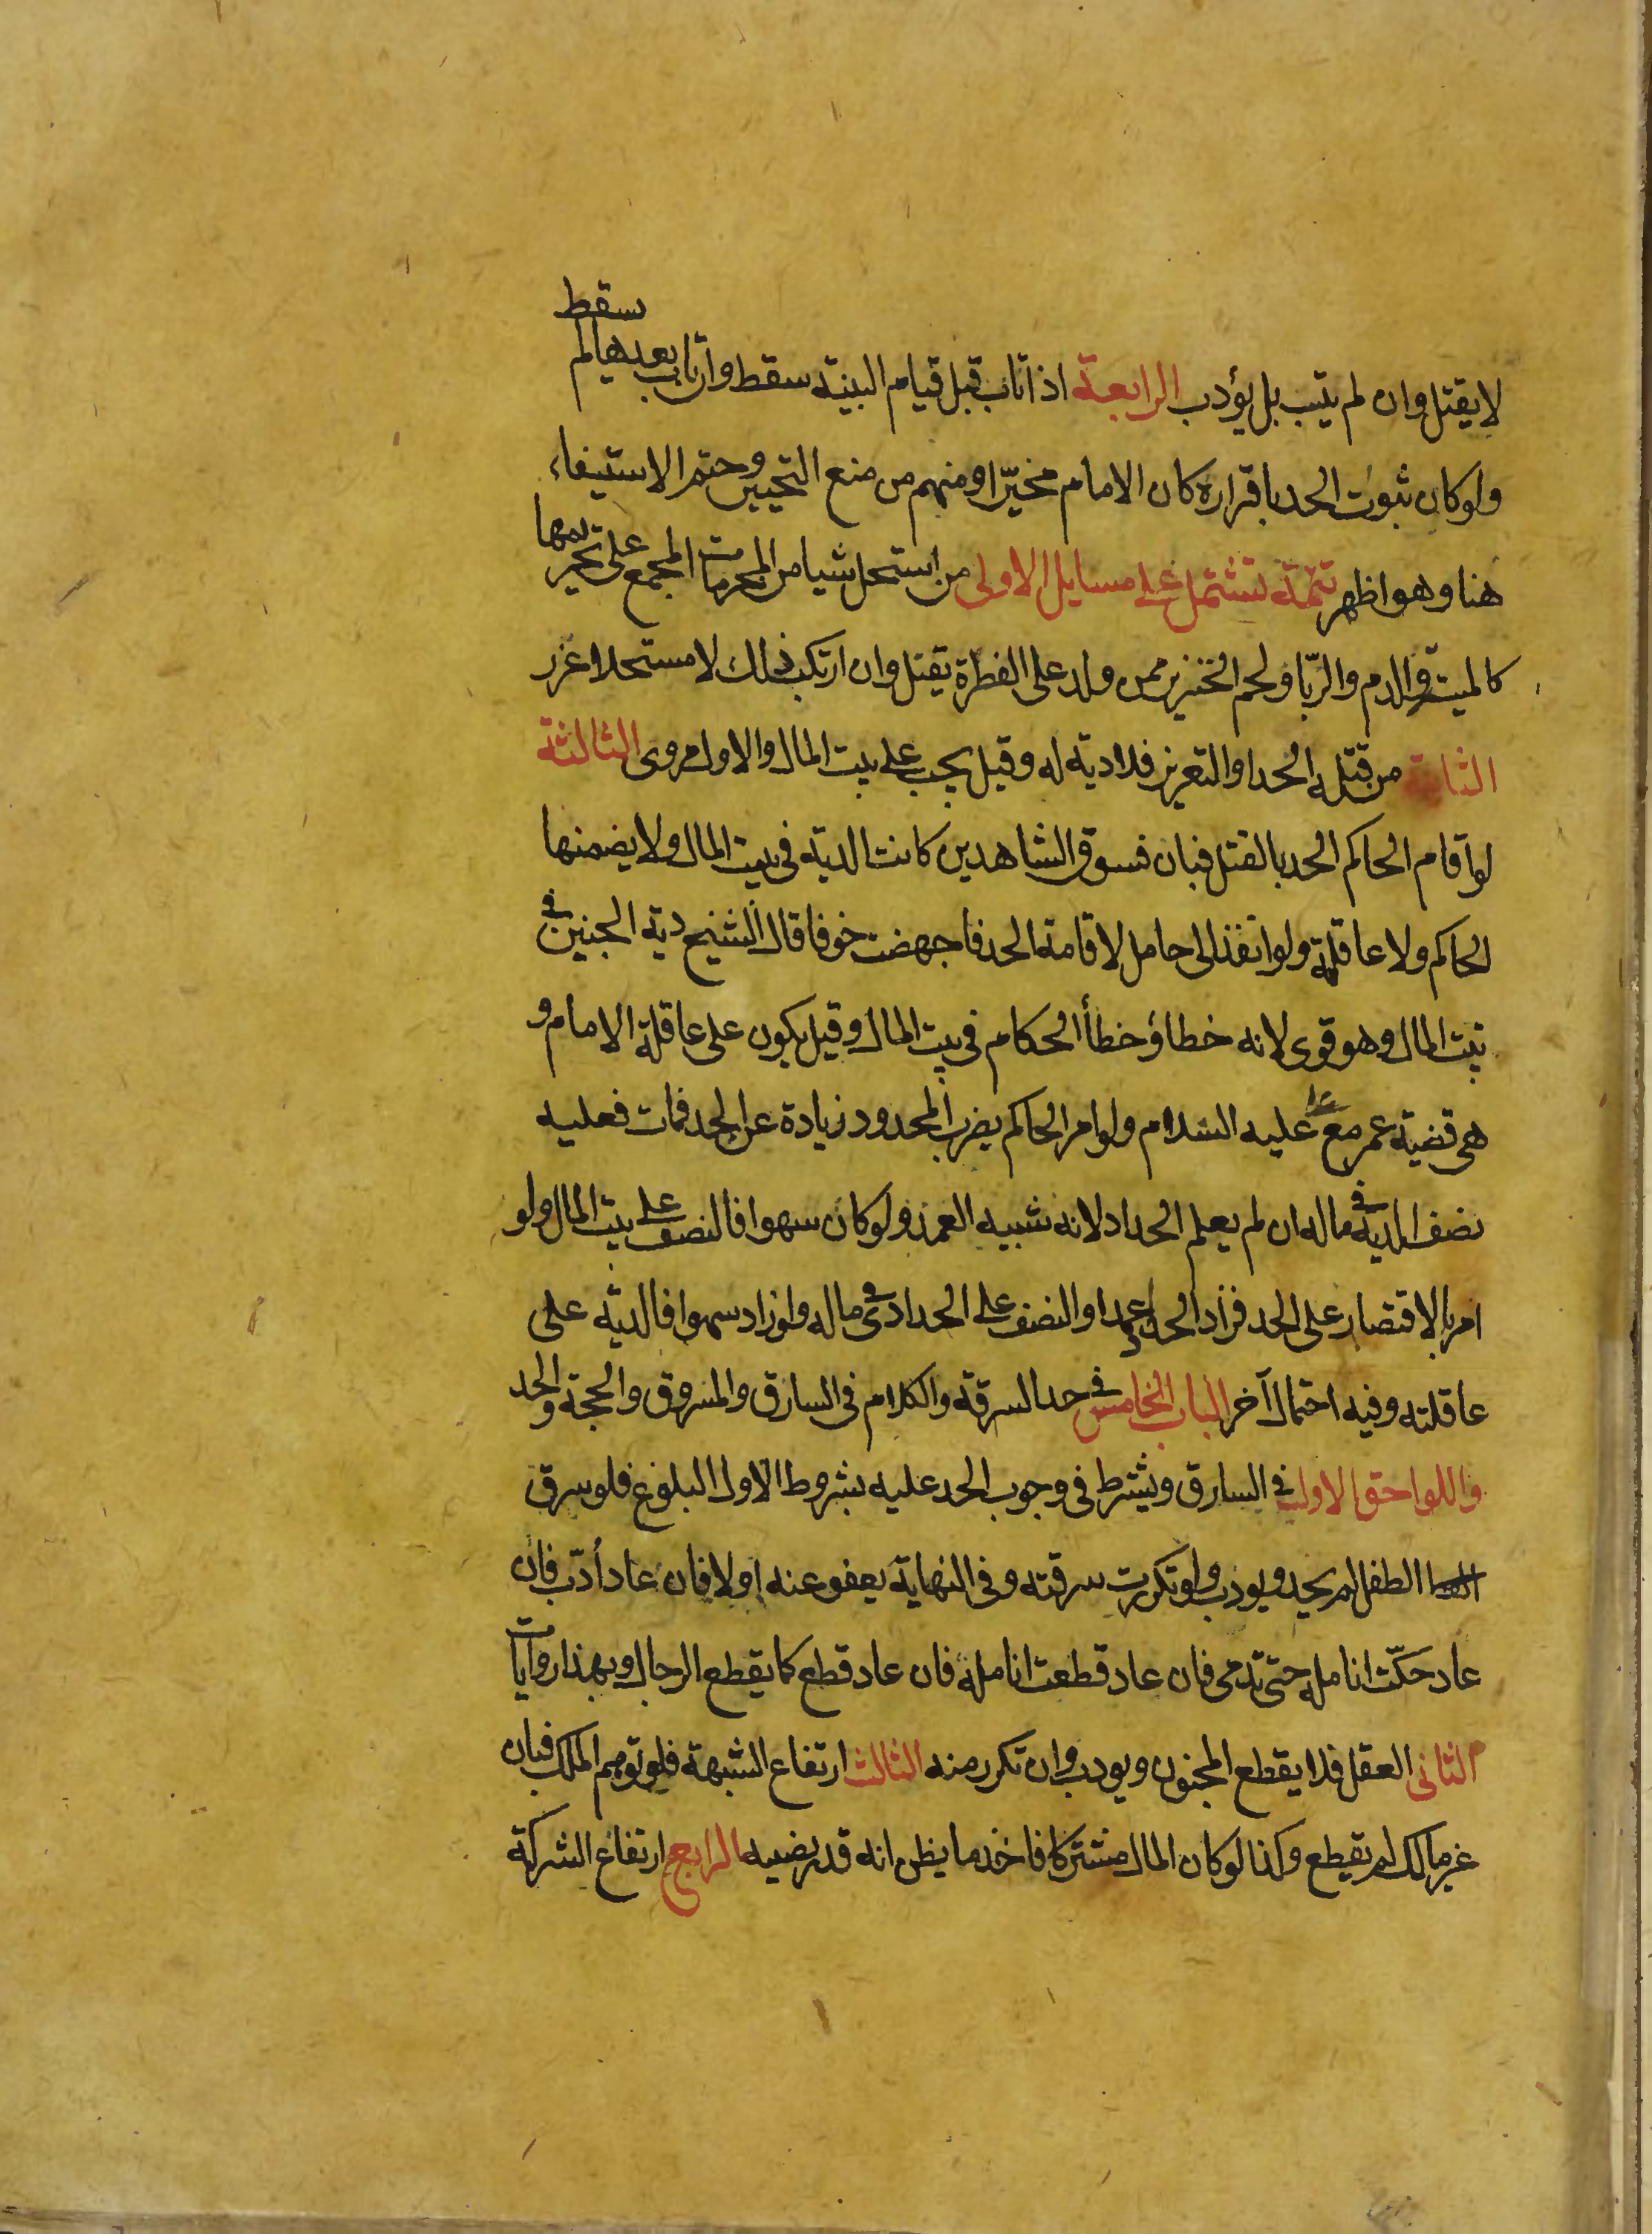 لا يقتل وان لم يتب بل يؤدب الرابعة اذا تاب قبل قيام البينة سقط وان تاب بعدها لم سقط
ولو كان ثبوت الحد باقراره كان الامام مخيّرا ومنهم من منع التخيير وحتم الاستيفاء
هنا وهو اظهر تتمّة تشتمل على مسايل الاولى من استحل شيا من المحرمات المجمع على تحريمها
كالميتة والدم والرّبا ولحم الخنزير ممن ولد على الفطرة يقتل وان ارتكب ذلك لا مستحلا عزر
الثانية من قتله الحد او التعزير فلا دية له وقيل يجب على بيت المال والاول مروى الثالثة
لو اقام الحاكم الحد بالقتل فبان فسوق الشاهدين كانت الدية فى بيت المال ولا يضمنها
الحاكم ولا عاقلته ولو انفذ الى حامل لاقامة الحد فاجهضت خوفا قال الشيخ دية الجنين فى
بيت المال وهو قوى لانه خطاؤ خطأ الحكام فى بيت المال وقيل يكون على عاقلة الامام و
هى قضية عمر مع على عليه السلام ولو امر الحاكم بضرب المحدود زيادة عن الحد فمات فعليه
نصف الدية فى ماله ان لم يعلم الحداد لانه شبيه العمد ولو كان سهوا فالنصف على بيت المال ولو
امر بالاقتصار على الحد فزاد الحداد عمدا والنصف على الحداد فى ماله ولو زاد سهوا فالدية على
عاقلته وفيه احتمال آخر الباب الخامس فى حد السرقة والكلام فى السارق والمسروق والحجة والحد
واللواحق الاول فى السارق ويشترط فى وجوب الحد عليه بشروط الاول البلوغ فلو سرق
الطفل لم يحد ويودب ولو تكررت سرقته وفى النهاية يعفو عنه اولا فان عاد أدّب فان
عاد حكّت انامله حتى تدمى فان عاد قطعت انامله فان عاد قطع كما يقطع الرجال وبهذا روايات
الثانى العقل فلا يقطع المجنون ويودب وان تكرر منه الثالث ارتفاع الشبهة فلو توهم الملك فبان
غير مالك لم يقطع وكذا لو كان المال مشتركا فاخذ ما يظن انه قدر نصيبه الرابع ارتفاع الشركة